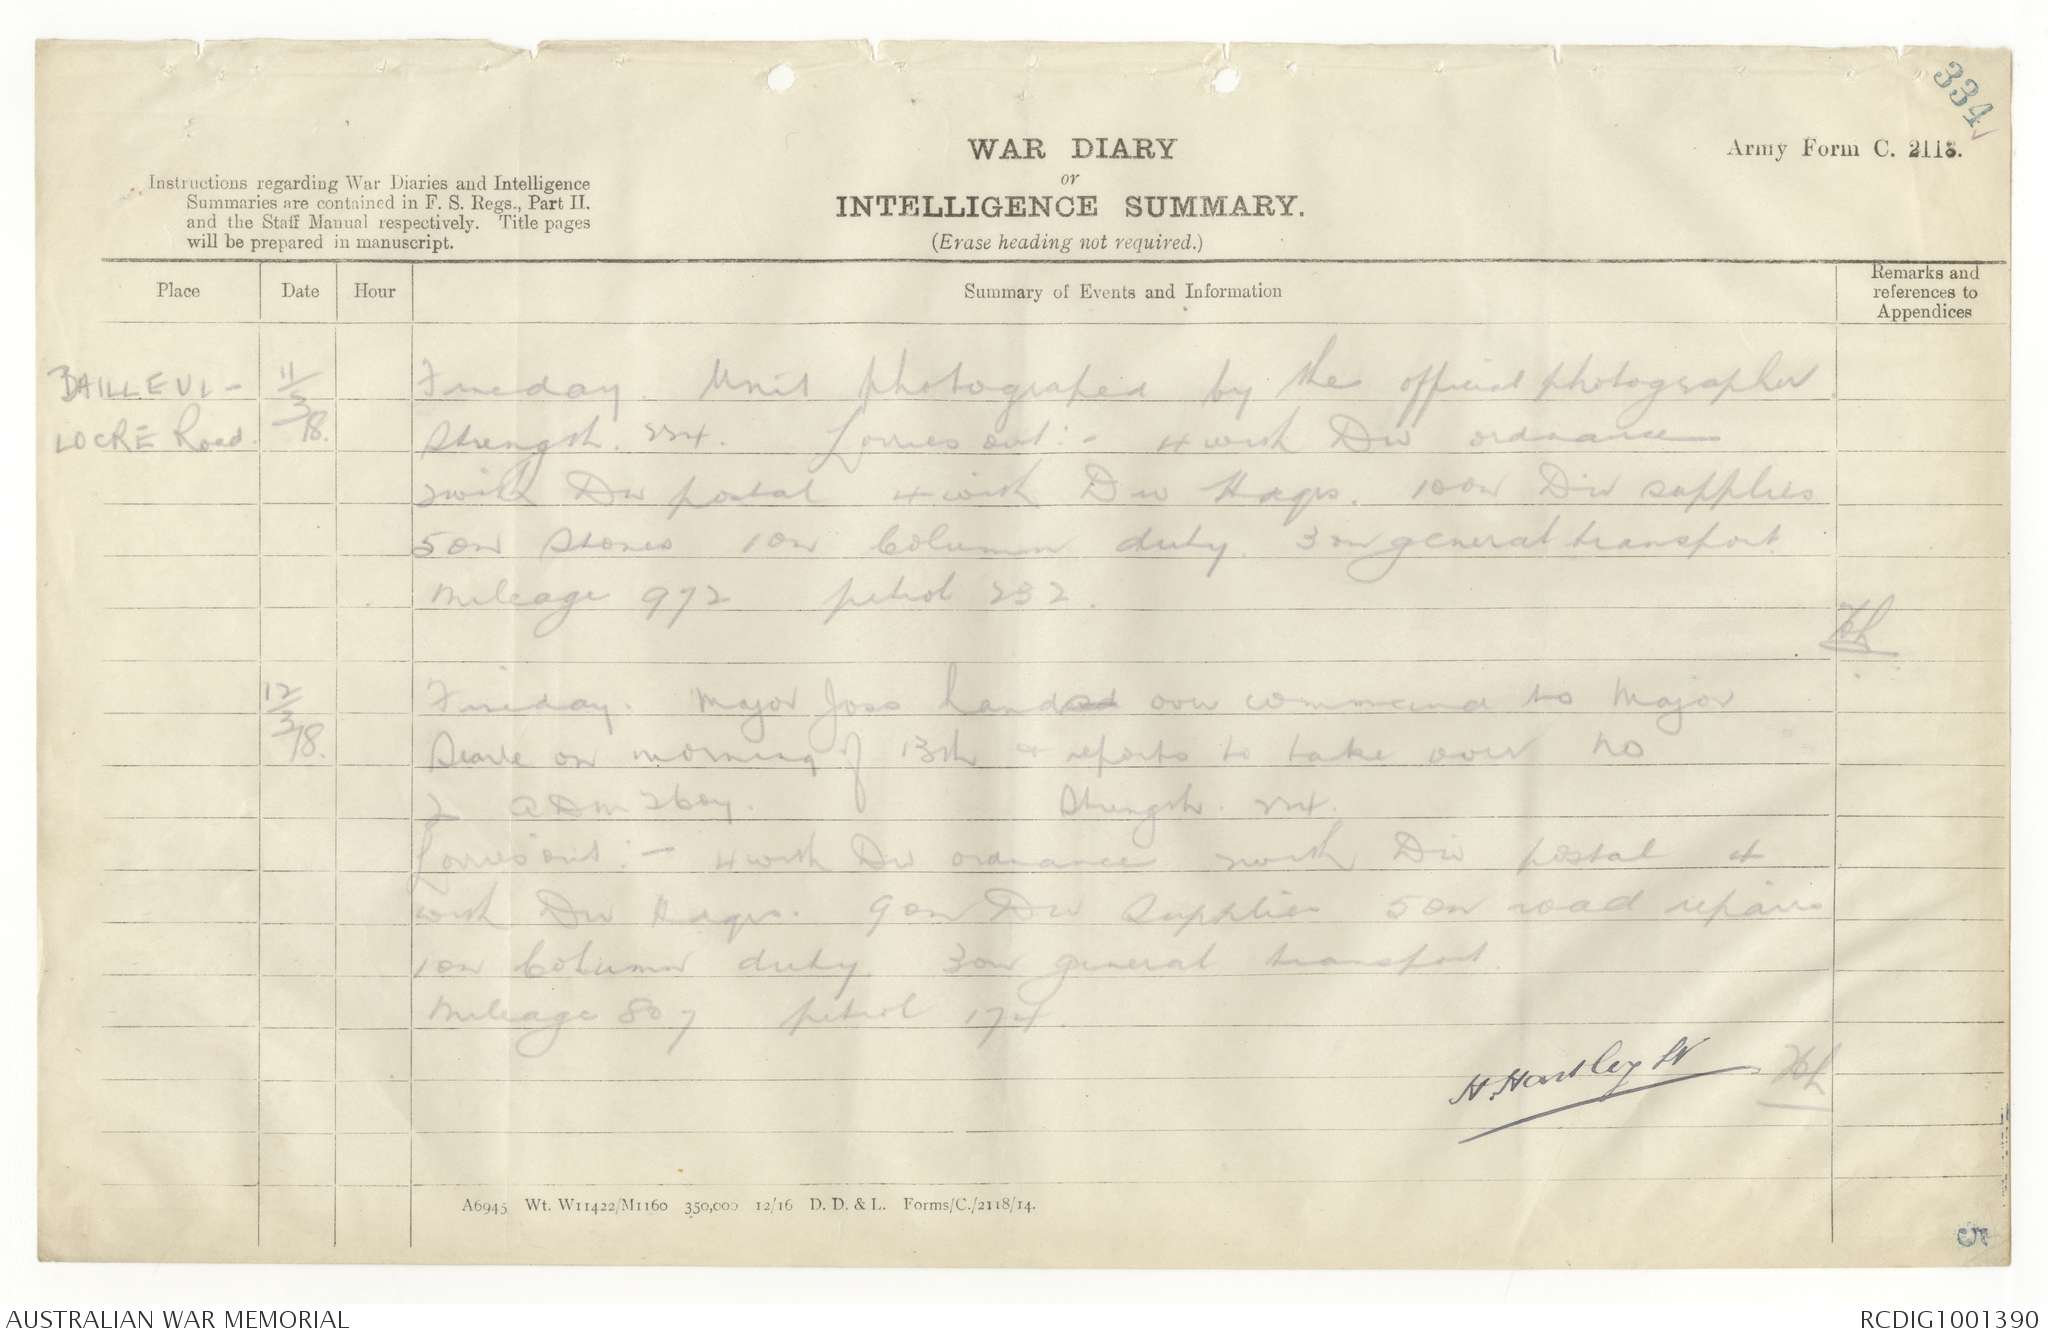 334
WAR DIARY
or
INTELLIGENCE SUMMARY.
(Erase heading not required.)
Army Form C. 2118.
Instructions regarding War Diaries and Intelligence
Summaries are contained in F. S. Regs., Part II.
and the Staff Manual respectively. Title pages
will be prepared in manuscript.
Place
Date
Hour
Summary of Events and Information
Remarks and
references to
Appendices
BAILLEUL -
LOCRE Road.
11/3/18.
Fine day. Unit photographed by the official photographer
Strength. 224. Lorries out :- 4 with Div ordnance
2 with Div postal 4 with Div Hdqrs. 10 on Div supplies
5 on stones 1 on Column duty. 3 on general transport.
Mileage 972 petrol 232.
12/3/18.
Fine day. Major Joss handed over command to Major
Searle on morning of 13th & reports to take over No
2 Coy. Strength. 224.
Lorries out :- 4 with Div ordnance 2 with Div postal 4
with Div Hdqrs. 9 on Div Supplies 5 on road repairs
1 on Column duty. 3 on general transport.
Mileage 807 petrol 174.
H. Hartley Lt
A6945 Wt. W11422/M1160 350,000 12/16 D. D. & L. Forms/C./2118/14.
AUSTRALIAN WAR MEMORIAL
RCDIG1001390